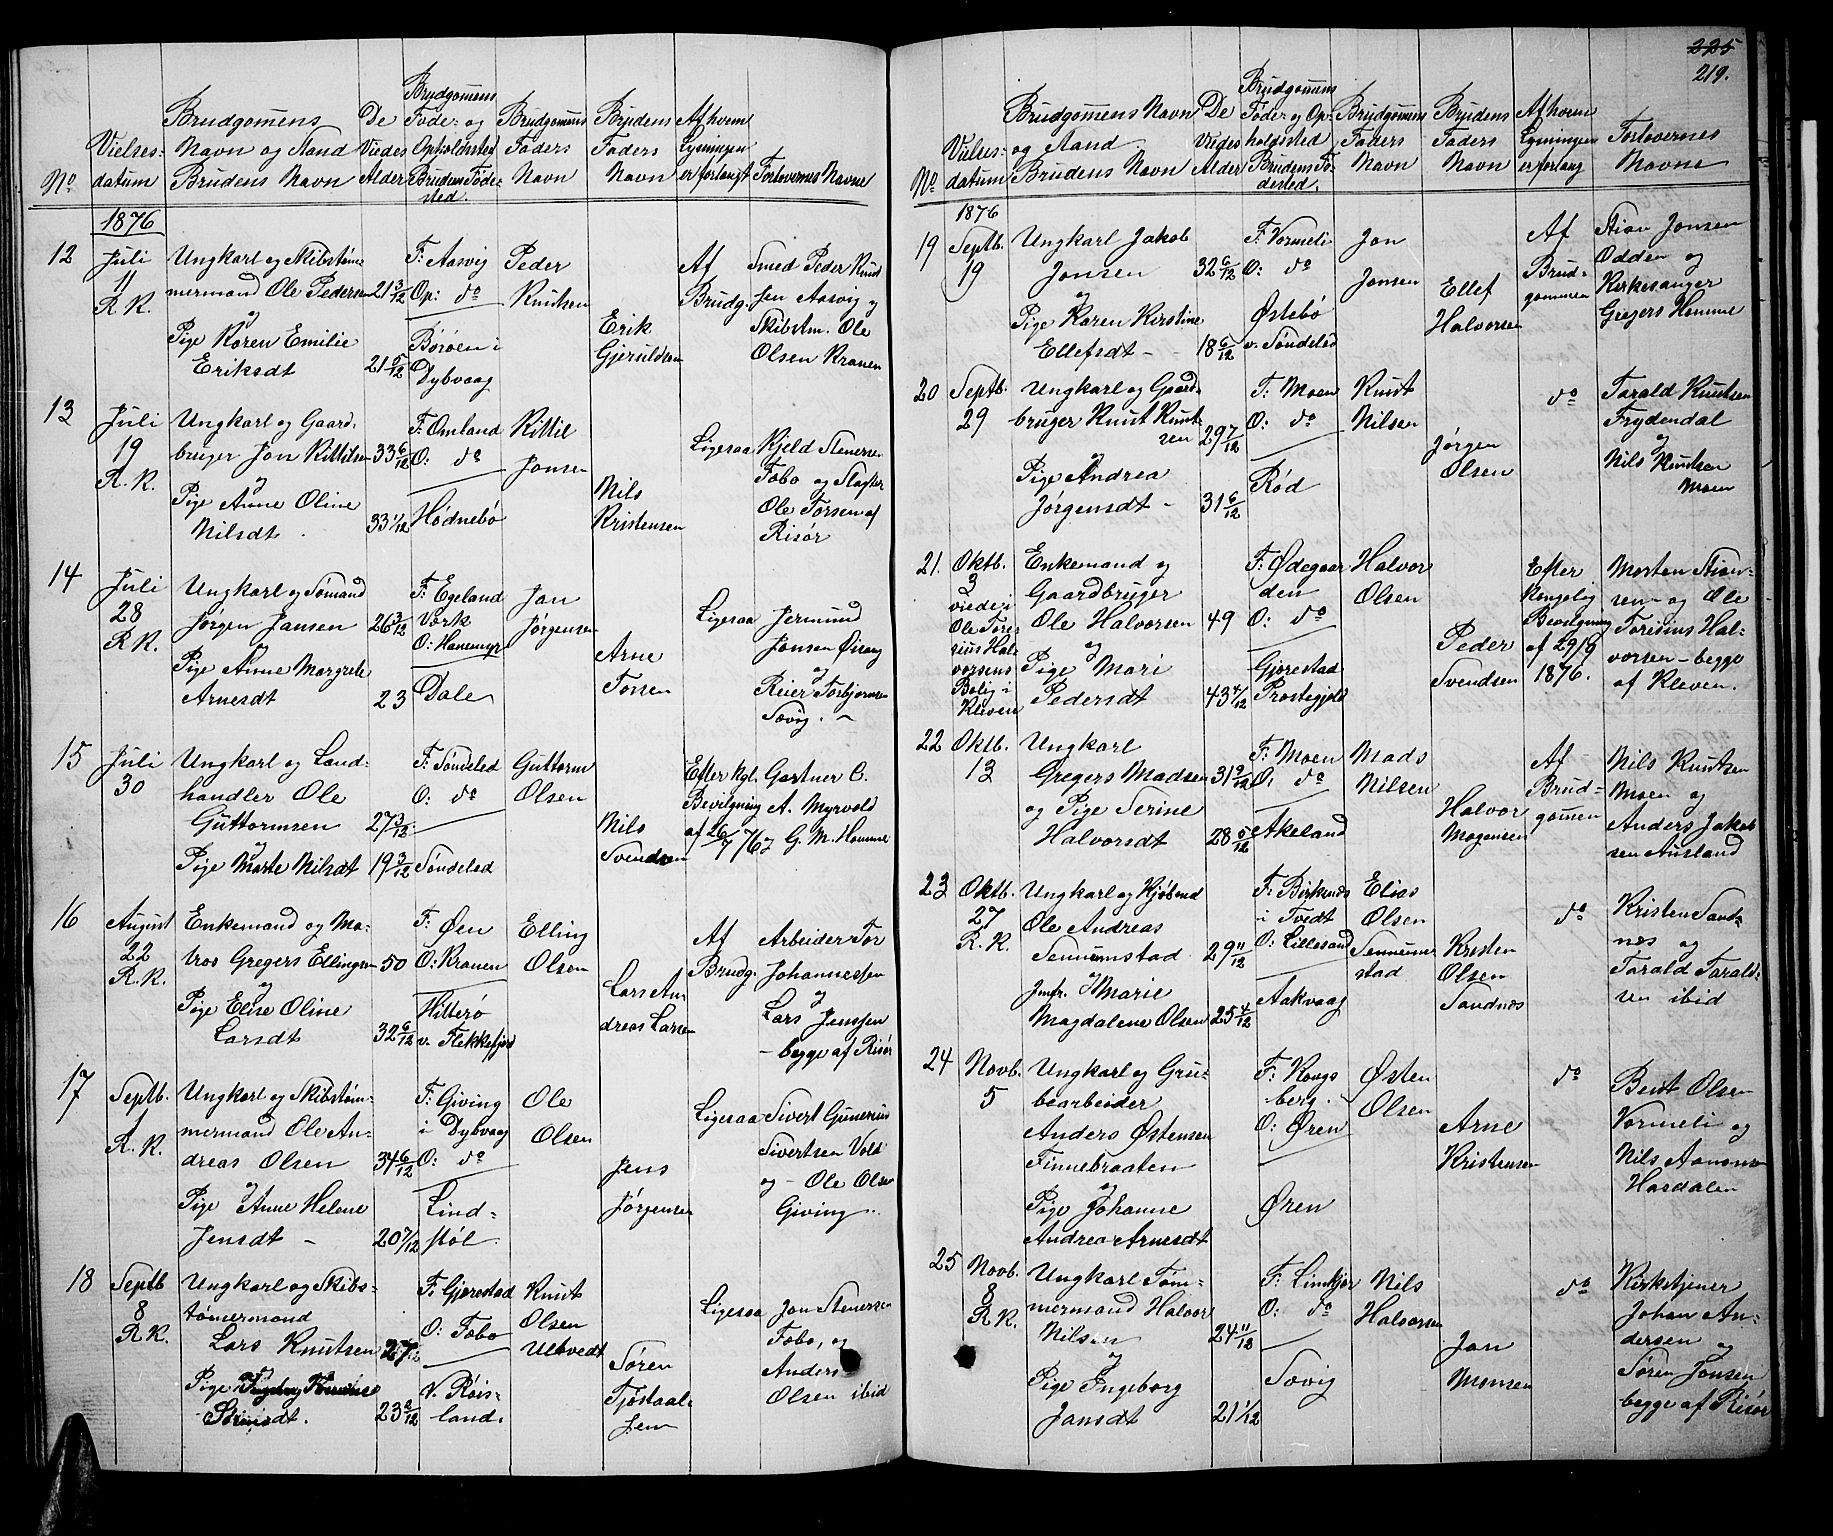 225
219.
No.
Vielses-
datum
Brudgomens
Navn og Stand
Brudens Navn
De
Viedes
Alder
Brudgomens
Føde- og
Opholdssted
Brudens Føde-
sted.
Brudgomens
Faders
Navn
Brudens
Faders
Navn
Af hvem
Lysningen
er forlangt
Forlovernes Navne
1876
12
Juli
11
R. K.
Ungkarl og Skibstøm-
mermand Ole Pedersen
og
Pige Karen Emilie
Eriksdt
21 3/12
21 5/12
F: Aasvig
Op: do
Børøen i
Dybvaag
Peder
Knutsen
Erik
Gjeruldsen
Af
Brudg.
Smed Peder Knud
sen Aasvig og
Skibstm. Ole
Olsen Kranen
13
Juli
19
R. K.
Ungkarl og Gaard-
bruger Jon Kittilsen
og
Pige Anne Oline
Nilsdt
33 6/12
33 11/12
F: Omland
O: do
Hødnebø
Kittil
Jonsen
Nils
Kristensen
Ligesaa
Kjeld Stenersen
Fobo og Slagter
Ole Torsen af
Risør
14
Juli
28
R. K.
Ungkarl og Sømand
Jørgen Jansen
Pige Anne Margrete
Arnesdt
26 3/12
23
F: Egeland
Værk
O: Hanemyr
Dale
Jan
Jørgensen
Arne
Torsen
Ligesaa
Jermund
Jonsen
og
Reier Torbjørnsen
Søvig.
15
Juli
30
Ungkarl og Land-
handler Ole
Guttormsen
og
Pige Marte Nilsdt
27 3/12
19 3/12
F: Søndeled
O: do
Søndeled
Guttorm
Olsen
Nils
Svendsen
Efter kgl.
Bevilgning
af 26/7 76
Gartner C.
A. Myrvold
og G. M. Homme
16
August
22
R. K.
Enkemand og Ma-
tros Gregers Ellingsen
og
Pige Elise Oline
Larsdt
50
32 6/12
F: Øen
O: Kranen
Hitterø
v. Flekkefjord
Elling
Olsen
Lars An-
dreas Larsen
Af
Brudg.
Arbeider Tor
Johannessen
og
Lars Jenssen
- begge af Risør
17
Septb.
R. K.
Ungkarl og Skibstøm-
mermand Ole An-
dreas Olsen
og
Pige Anne Helene
Jensdt -
34 6/12
20 7/12
F: Giving
i Dybvaag
O: do
Lind-
støl
Ole
Olsen
Jens
Jørgensen
Ligesaa
Sivert Gunerius
Sivertsen Vold
og - Ole Olsen
Giving
18
Septb
8
R. K.
Ungkarl og Skibs-
tømermand
Lars Knutsen
og
Pige
23 2/12
F: Gjerestad
O: Fobo
v. Røis-
land
Knut
Olsen
Ultvedt
Søren
Tjøstaal-
sen
Ligesaa
Jon Stenersen
Fobo, og
Anders
Olsen ibid
No.
Vielses-
datum
Brudgomens Navn
og Stand
Brudens Navn
De
Viedes
Alder
Brudgomens
Føde- og Op-
holdssted
Brudens Fø-
dested.
Brudgomens
Faders
Navn
Brudens
Faders
Navn
Af hvem
Lysningen
er forlang
Forlovernes
Navne
1876
19
Septb.
19
Ungkarl Jakob
Jonsen
og
Pige Karen Kirstine
Ellefsdt -
32 6/12
18 6/12
F: Vormeli
O: do
Østebø
v. Søndeled
Jon
Jonsen
Ellef
Halvorsen
Af
Brud-
gommen
Stian Jonsen
Odden og
Kirkesanger
Gregers Homme
20
Septb.
29
Ungkarl og Gaard-
bruger Knut Knut-
sen
og
Pige Andrea
Jørgensdt -
29 7/12
31 6/12
F: Moen
O: do
Rød
Knut
Nilsen
Jørgen
Olsen
do
Tarald Knutsen
Frydendal
og
Nils Knutsen
Moen
21.
Oktb.
3
viede i
Ole Tore-
sius Hal-
vorsens
Bolig i
Kleven
Enkemand og
Gaardbruger
Ole Halvorsen
og
Pige Mari
Pedersdt
49
43 4/12
F: Ødegaar
den
O: do
Gjerestad
Prestegjeld
Halvor
Olsen
Peder
Svendsen
Efter
Kongelig
Bevilgning
af 29/9
1876.
Morten Stian-
sen og Ole
Toresius Hal-
vorsen - begge
af Kleven.
22
Oktb.
13
Ungkarl
Gregers Madsen
og Pige Serine
Halvorsdt
31 9/12
28 5/12
F: Moen
O: do
Akeland
Mads
Nilsen
Halvor
Mogensen
Af
Brud-
gomen
Nils Knutsen
Moen og
Anders Jakob
sen Ausland
23
Oktb.
27
R. K.
Ungkarl og Kjøbmd
Ole Andreas
Sennumstad
og
Jmfr. Marie
Magdalene Olsen
29 11/12
25 4/12
F: Birkenes
i Tvedt
O: Lillesand
Aakvaag
Elias
Olsen
Sennum-
stad
Kristen
Olsen
Sandnes
do
Kristen Sand-
nes og
Tarald Tarald-
sen ibid
24
Novb.
5
Ungkarl og Gru-
bearbeider
Anders Østensen
Finnebraaten
og
Pige Johanne
Andrea Arnesdt
F: Kongs
berg.
O: Øren
Øren
Østen
Olsen
Arne
Kristensen
do
Bent Olsen
Vormeli og
Nils Aanonsen
Hasdalen
25
Novb.
8
R. K.
Ungkarl Tøm-
mermand Halvor
Nilsen
og
Pige Ingeborg
Jansdt
24 11/12
21 1/12
F: Limkjær
O: do
Søvig
Nils
Halvorsen
Jan
Monsen
do
Kirketjener
Johan An-
dersen og
Søren Jonsen
begge af Risør